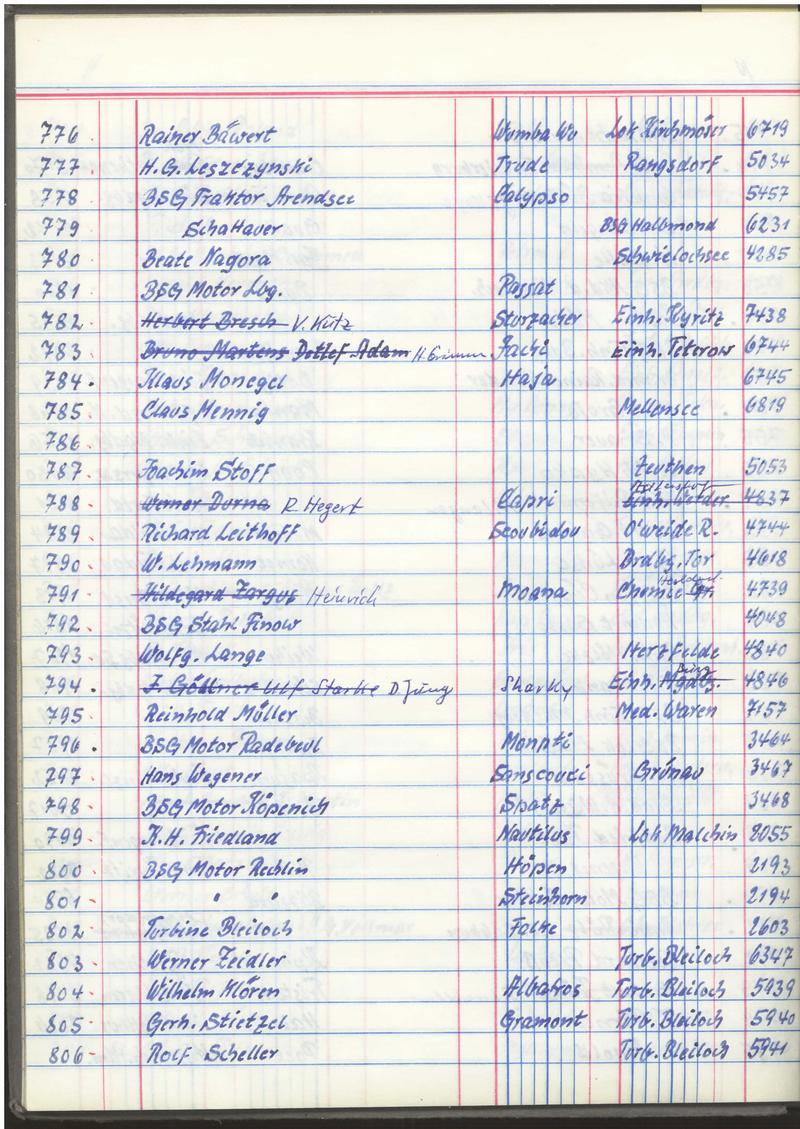 776. Rainer Bäwert Wumba Wu Lok Kirchmöser 6719
777. H.G. Leszczynski Trude Rangsdorf 5034
778. BSG Traktor Arendsee Calypso 5457
779 Schattauer BSG Halbmond 6231
780. Beate Nagora Schwielochsee 4285
781. BSG Motor Lbg. Passat
782. Herbert Bresch V. Kutz Sturzacher Einh. Kyritz 7438
783. Bruno Martens Detlef Adam H. Grimm Fachi Einh. Teterow 6744
784. Klaus Monegel Haja 6745
785. Claus Mennig Mellensee 6819
786.
787. Joachim Stoff Zeuthen 5053
788. Werner Durna R. Hegert Capri Einh. Werder. 4837
789. Richard Leithoff Scoubidou O'weide R. 4744
790. W. Lehmann Brdbg. Tor 4618
791. Hildegard Zargus Heinrich Moana Chemie 4739
792. BSG Stahl Finow 4048
793. Wolfg. Lange Herzfelde 4840
794. J. Göllner Ulf Starke D. Jung Sharky Einh. Mgdbg. Burg 4846
795. Reinhold Müller Med. Waren 7157
796. BSG Motor Radebeul Monpti 3464
797. Hans Wegener Sanscouci Grünau 3467
798. BSG Motor Köpenich Spatz 3468
799. K.H. Friedland Nautilus Lok Malchin 2055
800. BSG Motor Rechlin Höpen 2193
801. " " Steinhorn 2194
802. Turbine Bleiloch Falke 2603
803. Werner Zeidler Turb. Bleiloch 6347
804. Wilhelm Klören Albatros Turb. Bleiloch 5939
805. Gerh. Stietzel Gramont Turb. Bleiloch 5940
806. Rolf Scheller Turb. Bleiloch 5941